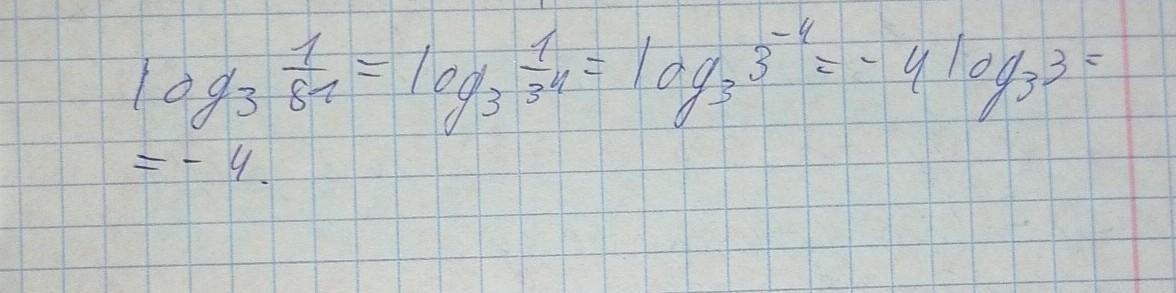 log₃ 1/81 = log₃ 1/3⁴ = log₃ 3⁻⁴ = - 4 log₃ 3 =
= - 4.